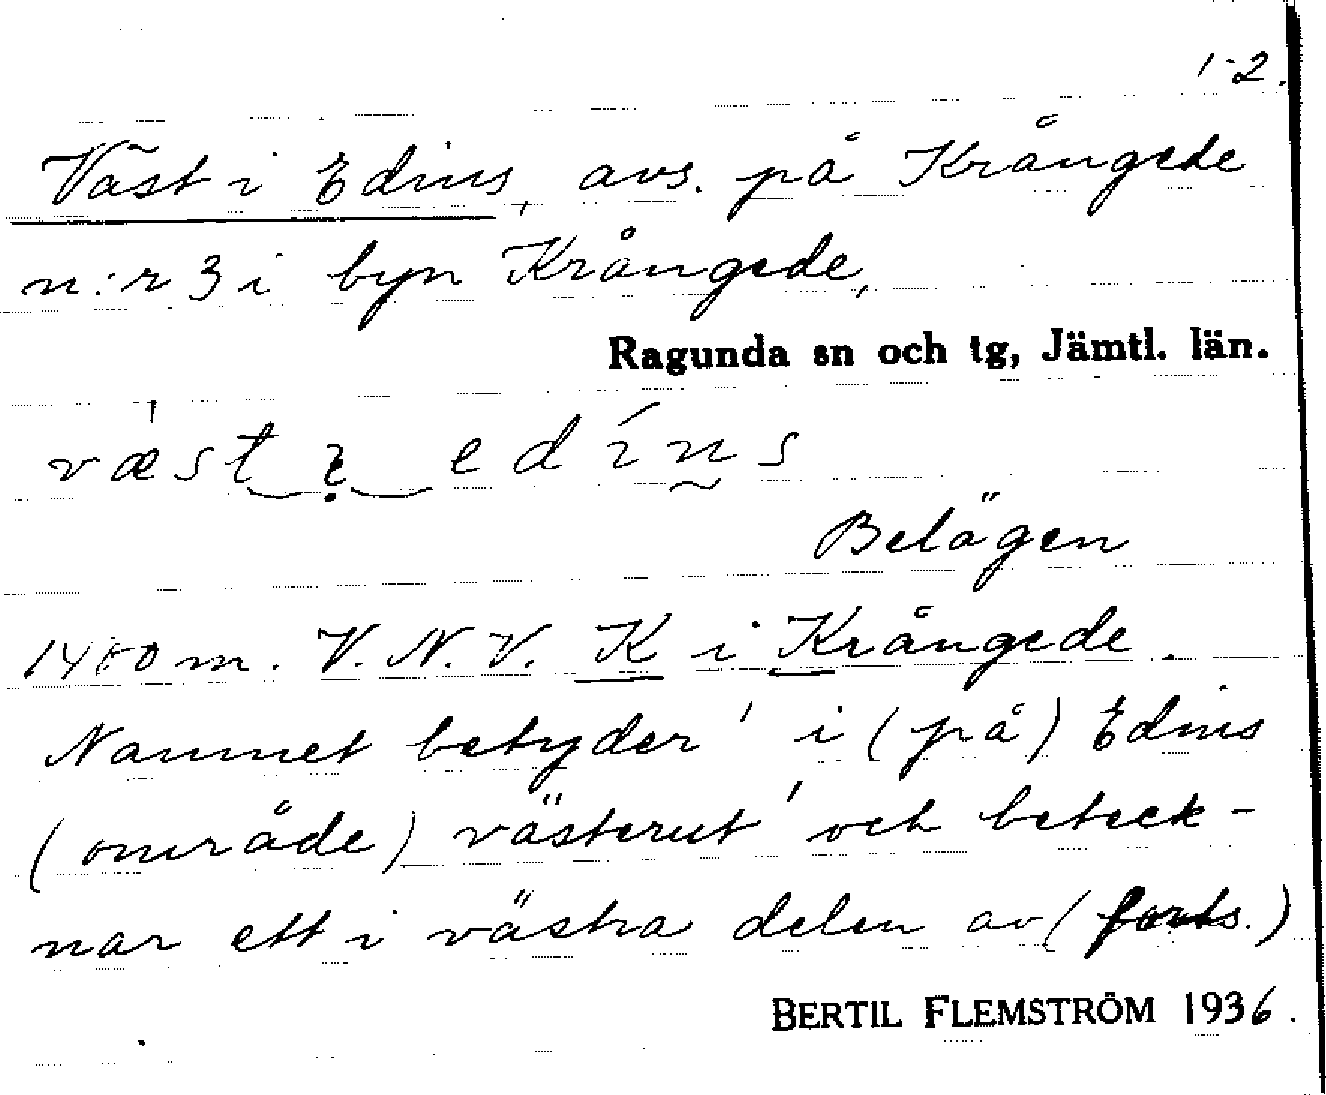 1-2.
Väst i Edins, avs. på Krångede
n:r 3 i byn Krångede,
Ragunda sn och tg, Jämtl. län.
væst ı̣ edíns
Belägen
1400 m. V.N.V. K i Krångede.
Namnet betyder 'i (på) Edins
(område) västerut' och beteck-
nar ett i västra delen av (forts.)
BERTIL FLEMSTRÖM 1936.